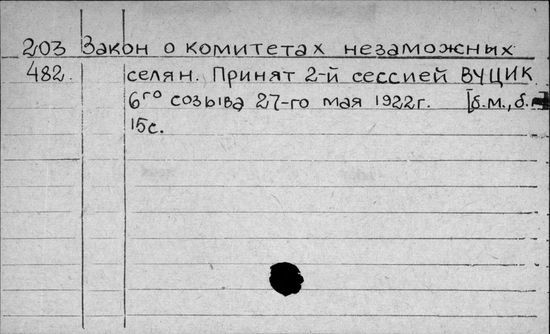 203 Закон о комитетах незаможных
482. селян. Принят 2-й сессией ВУЦИК
6го созыва 27-го мая 1922г. [б.м., б.г.]
15с.